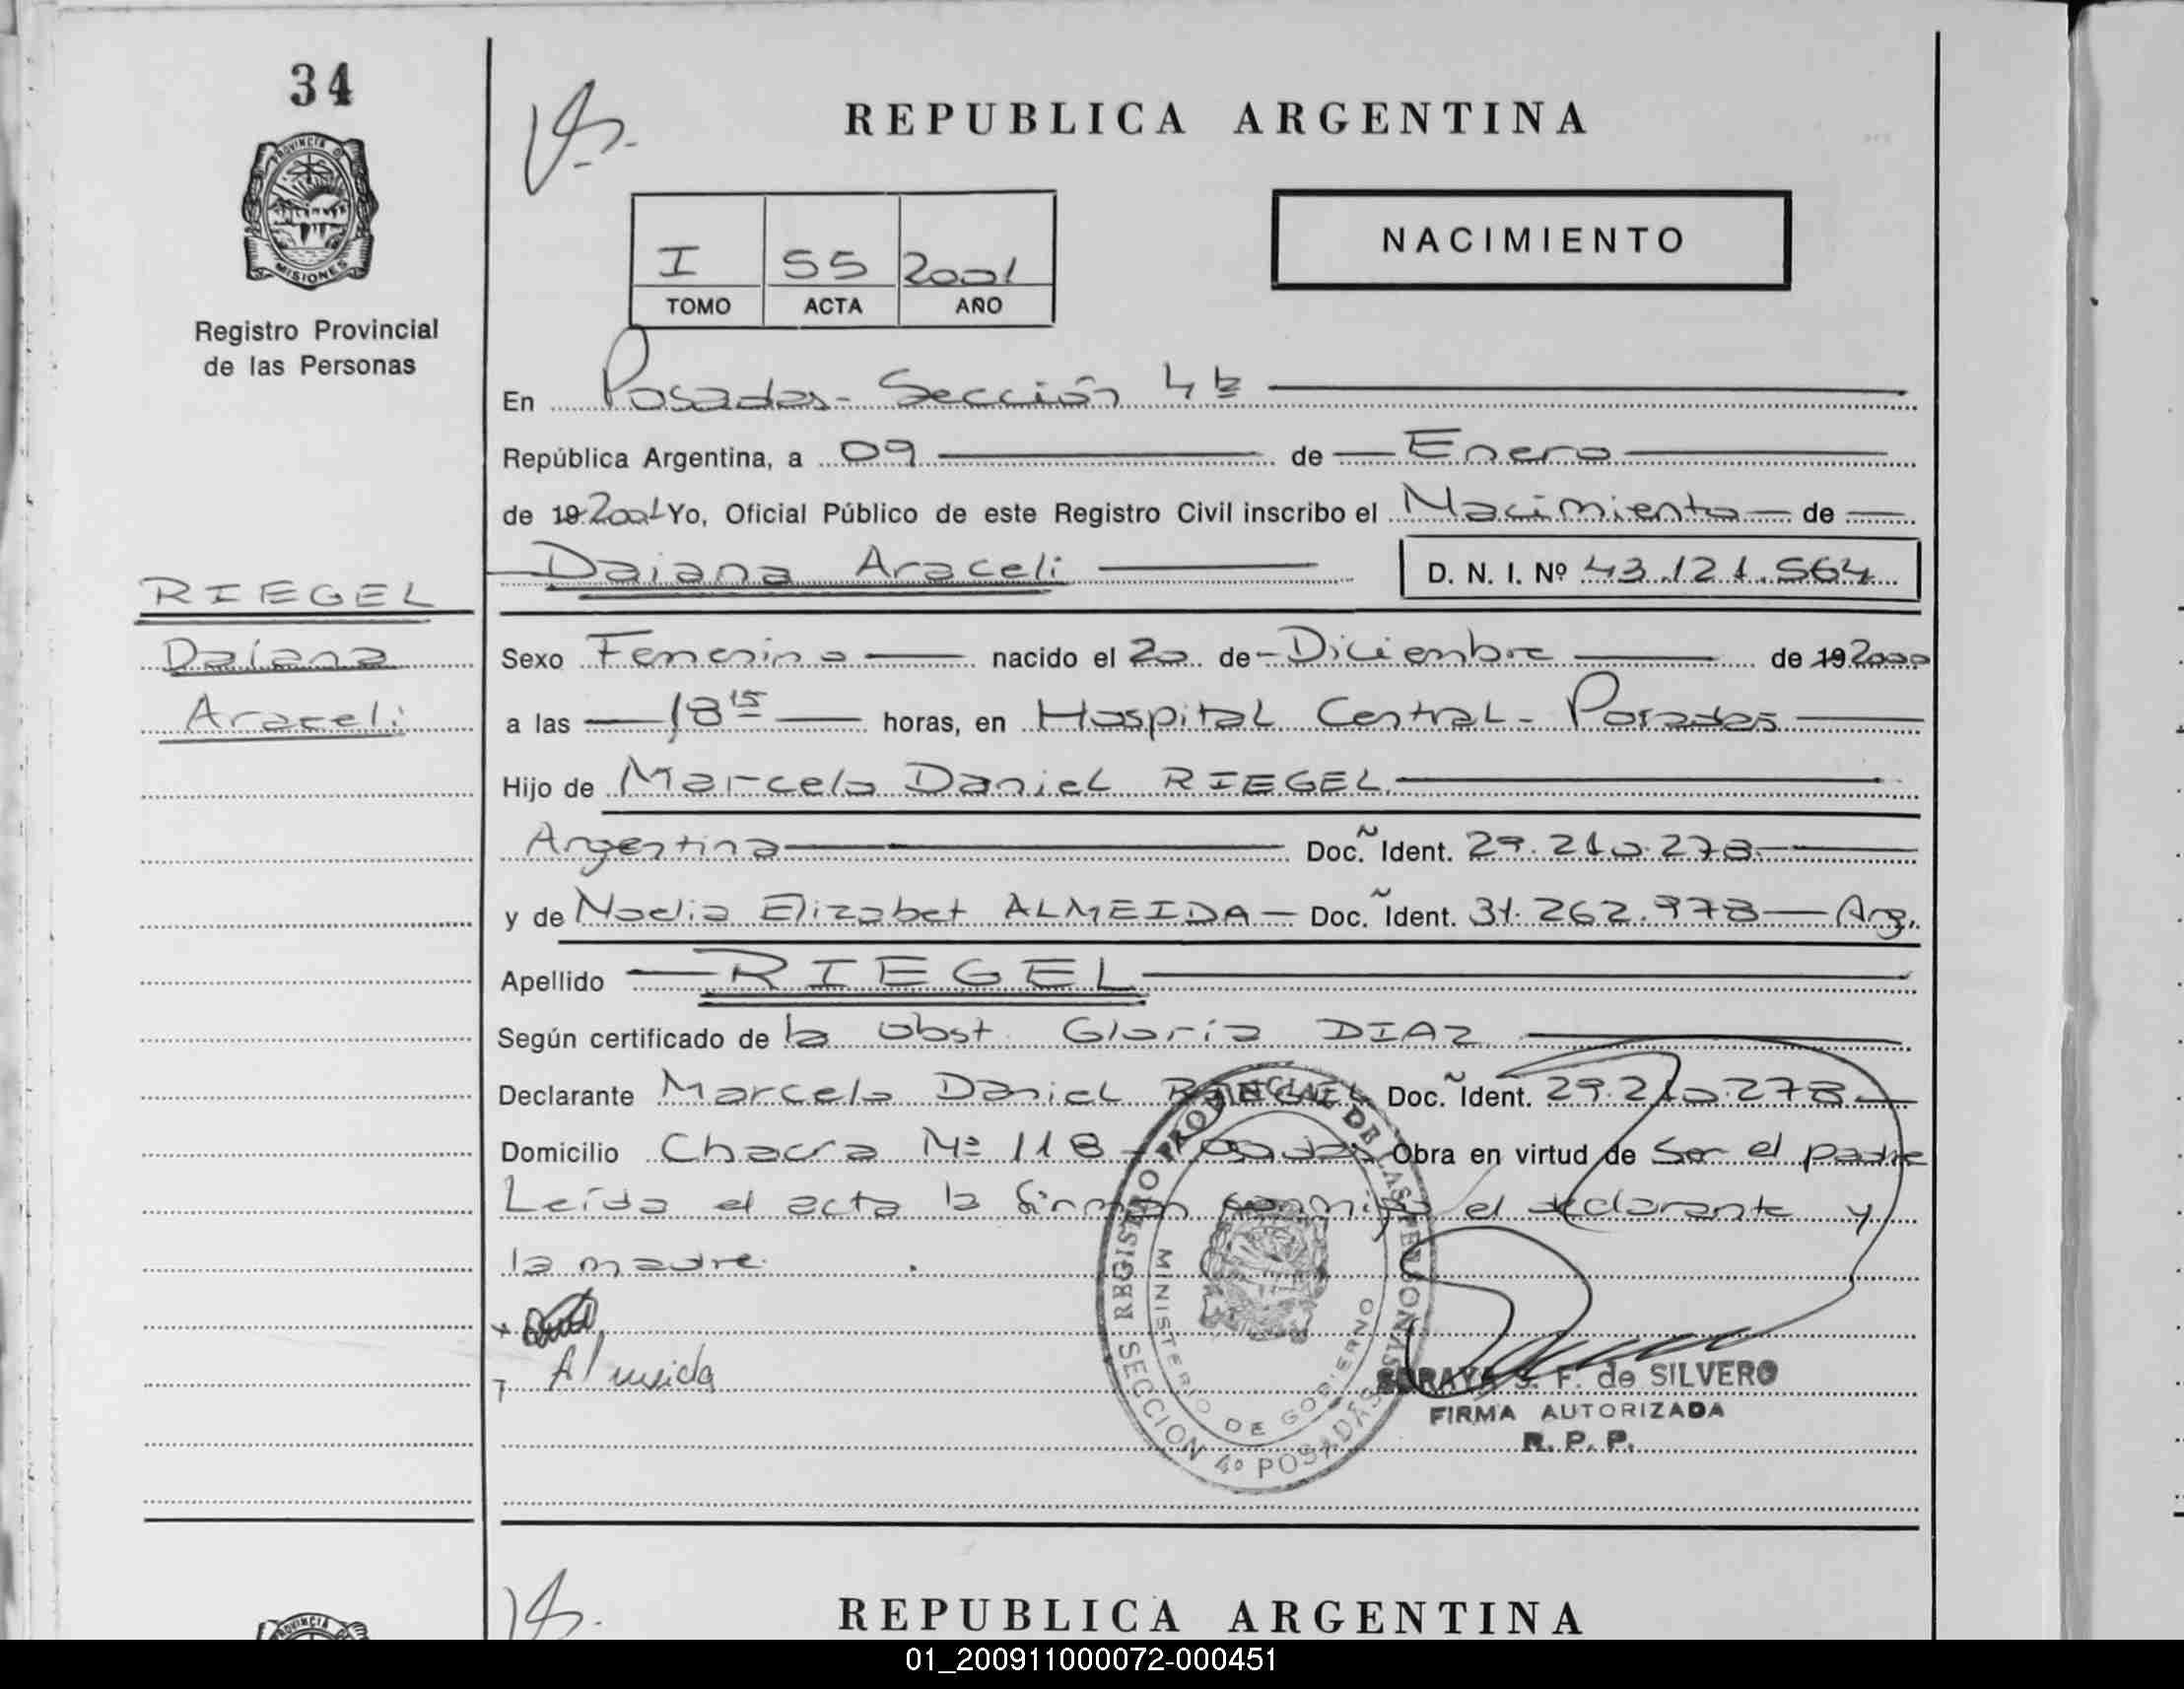 34
PROVINCIA D
MISIONES
Registro Provincial
de las Personas
RIEGEL
Daiana
Araceli
REPUBLICA ARGENTINA
I 55 2001
TOMO ACTA AÑO
NACIMIENTO
En Posadas - Sección 4ta
República Argentina, a 09 de Enero
de 19 2001 Yo, Oficial Público de este Registro Civil inscribo el Nacimiento de
Daiana Araceli D. N. I. Nº 43.121.564
Sexo Femenino nacido el 20 de Diciembre de 19 2000
a las 18 15 horas, en Hospital Central - Posadas
Hijo de Marcelo Daniel RIEGEL
Argentina Doc. Ident. 29.210.278
y de Nadia Elizabet ALMEIDA - Doc. Ident. 31.262.978 - Arg.
Apellido RIEGEL
Según certificado de la obst. Gloria DIAZ
Declarante Marcelo Daniel RIEGEL Doc. Ident. 29.210.278
Domicilio Chacra Nº 118 - Posadas Obra en virtud de ser el padre
Leída el acta la firman conmigo el declarante y
la madre.
Almeida
REGISTRO PROVINCIAL DE LAS PERSONAS
MINISTERIO DE GOBIERNO
SECCION 4º POSADAS
SORAYA S. F. de SILVERO
FIRMA AUTORIZADA
R. P. P.
REPUBLICA ARGENTINA
01_200911000072-000451